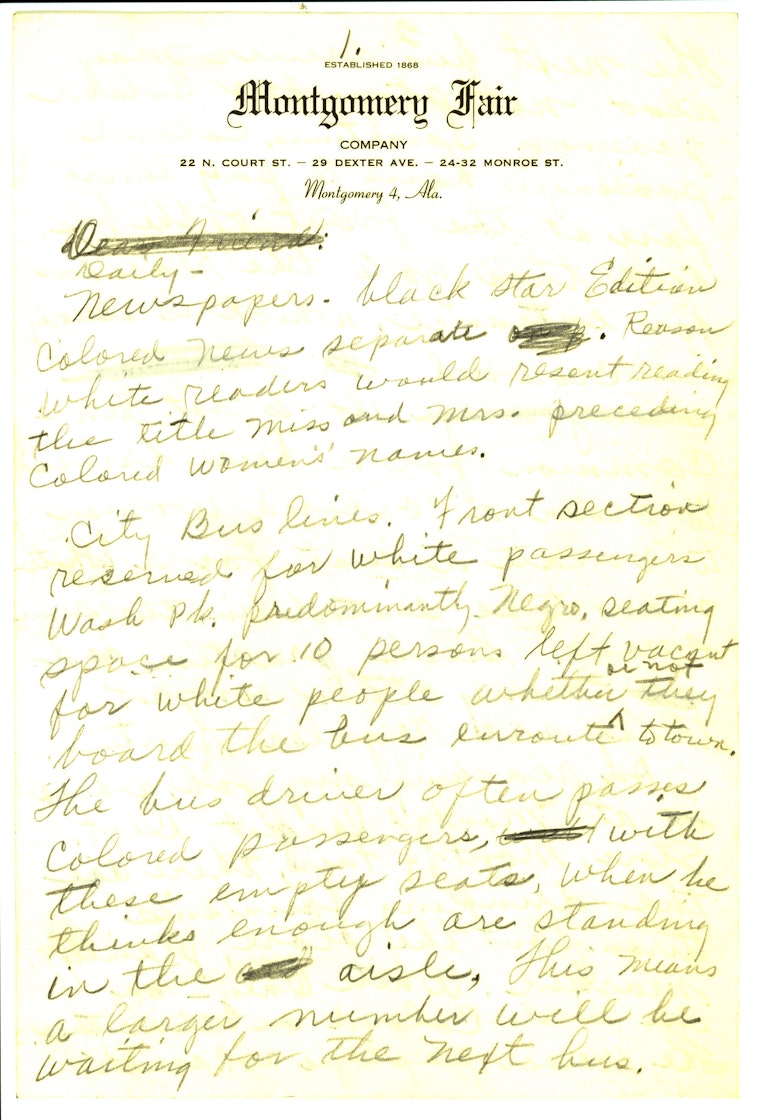 1.
ESTABLISHED 1868
Montgomery Fair
COMPANY
22 N. COURT ST. — 29 DEXTER AVE. — 24-32 MONROE ST.
Montgomery 4, Ala.
Dear Friend:
Daily -
Newspapers - black star Edition
Colored News separate . Reason
white readers would resent reading
the title Miss and Mrs. preceding
Colored women's names.
City Bus lines. Front section
reserved for white passengers
Wash Pk. predominantly Negro, seating
space for 10 persons left vacant
for white people whether or not they
board the bus enroute to town.
The bus driver often passes
Colored passengers, with
these empty seats, when he
thinks enough are standing
in the aisle, This means
a larger number will be
waiting for the next bus.